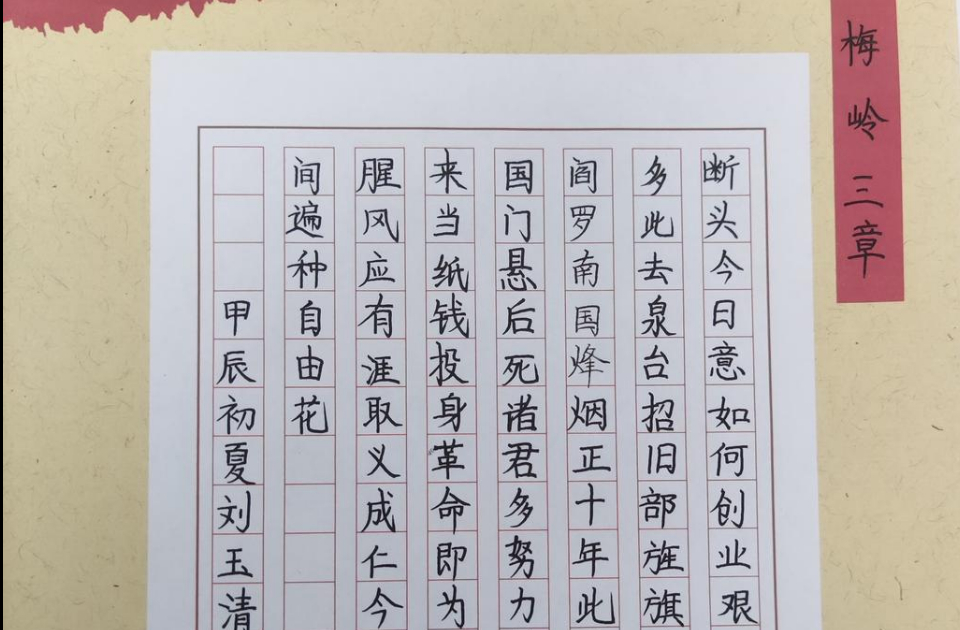 梅岭三章
断头今日意如何创业艰
多此去泉台招旧部旌旗
阎罗南国烽烟正十年此
国门悬后死诸君多努力
来当纸钱投身革命即为
腥风应有涯取义成仁今
间遍种自由花
甲辰初夏刘玉清